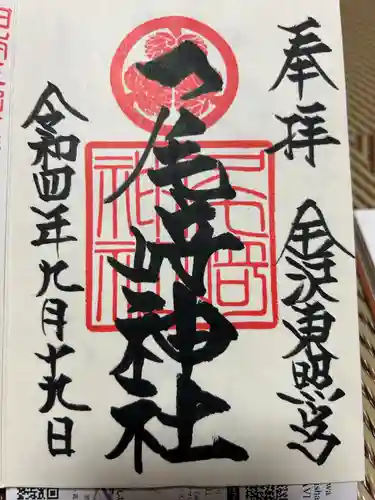 奉拝 金沢東照宮
尾崎神社
令和四年九月十九日